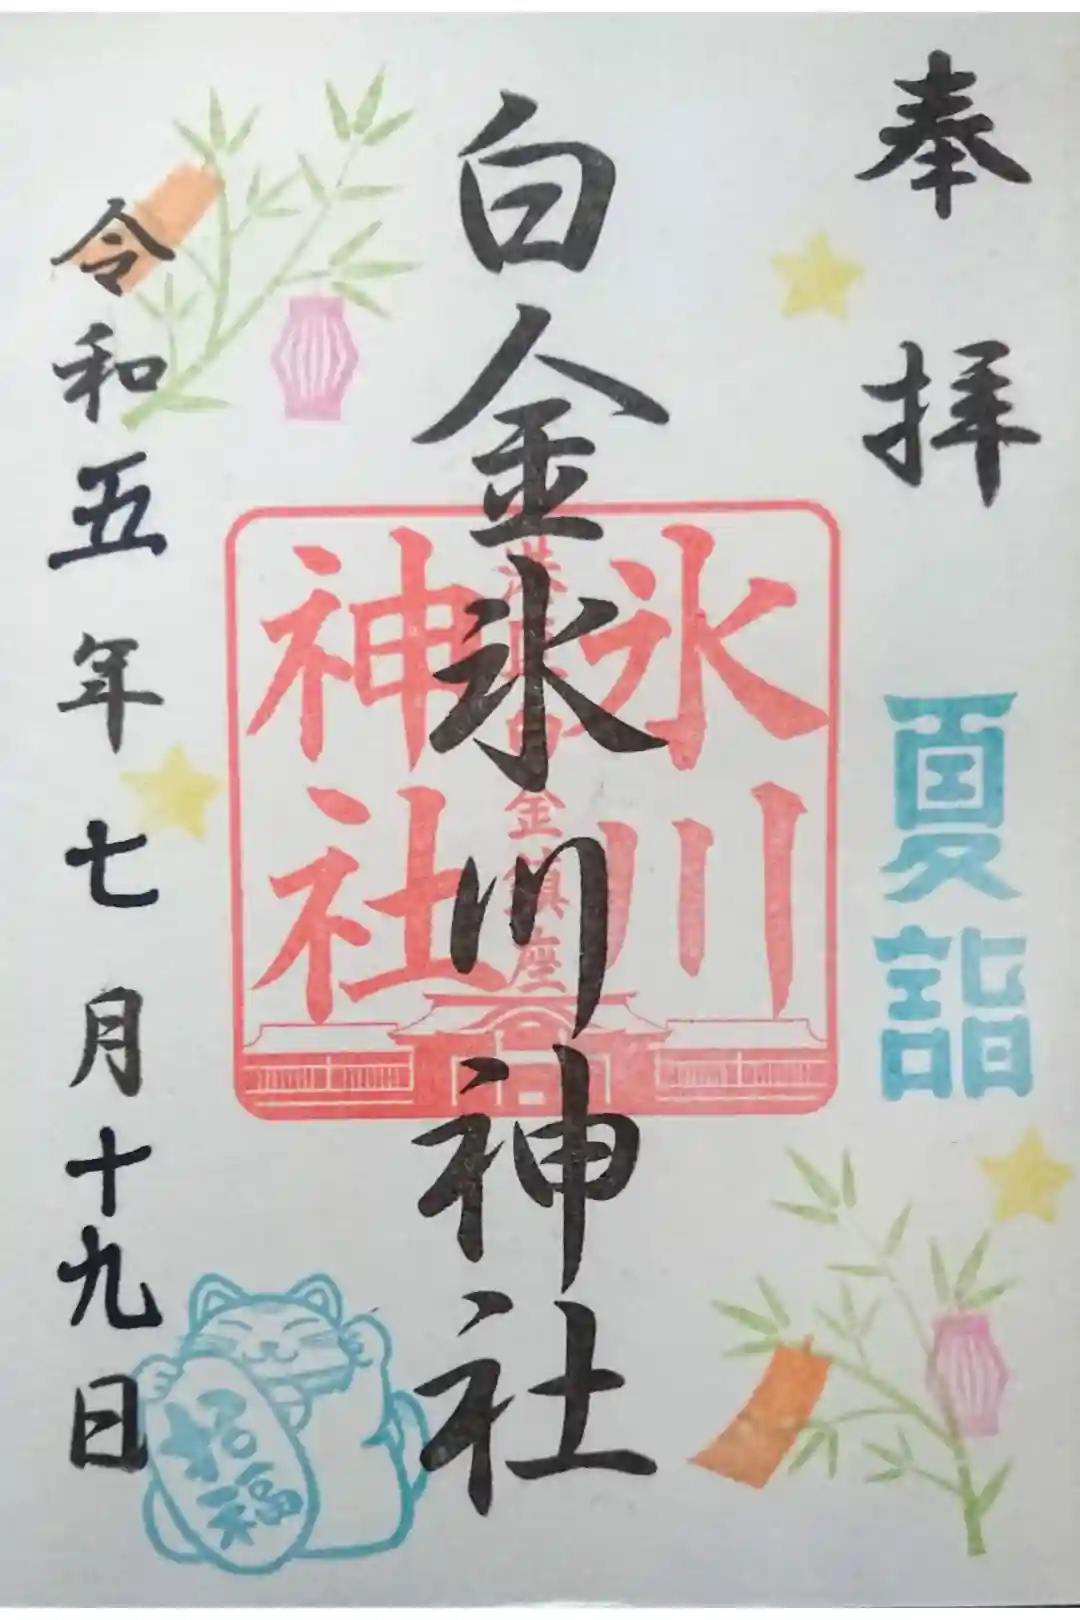 奉拝
夏詣
白金氷川神社
氷川
神社
港區白金鎮座
令和五年七月十九日
招福